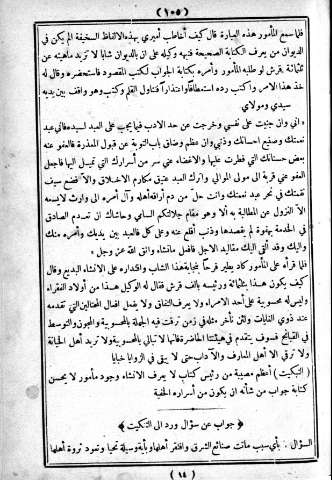 (١٠٥)
فلما سمع المأمور هذه العبارة قال كيف أخاطب أميري بهذه الالفاظ السخيفة الم يكن في
الديوان من يعرف الكتابة الصحيحة فنبه وكيله على ان بالديوان شابا لا تزيد ماهيته عن
ثلثمائة قرش لو طلبه المأمور وأمره بكتابة الجواب لكتب المقصود فاستحضره وقال له
خذ هذا الامر واكتب رده استعطافًا واعتذارًا فتناول القلم وكتب وهو واقف بين يديه
سيدي ومولاي
اني وان جنيت على نفسي وخرجت عن حد الادب فيما يجب على العبد لسيده فاني عبد
نعمتك وصنيع احسانك وذنبي وان عظم وضاق باب التوبة عن قبول المعذرة فالعفو عنه
بعض حسناتك التي فطرت عليها والاغضاء عني من أسرارك التي تميل اليها فاجعل
العفو عني قربة الى مولى الموالي واترك العبد عتيق مكارم الاخلاق والا فضع سيف
نقمتك في نحر عبد نعمتك وانت حل من دم أراقه أهله وآل أمره الى وارث لا يسعه
الا النزول عن المطالبة به ألا وهو مقام جلالتكم السامي وحاشاك ان تعدم الصادق
في الخدمة بهفوة لم يقصدها وذنب أقلع عنه وعلى كل فالعبد بين يديك وأمره منك
واليك وقد ألقى اليك مقاليد الاجل فافعل ماشاء واتق الله عز وجل
فلما قرأه على المأمور كاد يطير فرحًا بنجابة هذا الشاب واقتداره على الانشاء البديع وقال
كيف يكون هذا بثلثمائة ورئيسه بألف قرش فقال له الوكيل هذا من أولاد الفقراء
وليس له محسوبية على أحد الامراء ولا يعرف النفاق ولا يفعل افعال المحتالين التي تقدمه
عند ذوي الغايات ولئن تأخر مثله في زمن ترقت فيه الجهلة بالمحسوبية والمجون والتوسط
في القبائح فسوف يتقدم في هيئتنا الحاضرة فانها لا تبالي بالمحسوبية ولا تريد أهل الخيانة
ولا ترقي الا أهل المعارف والآداب حتى لا يبقى في الزوايا خبايا
(التبكيت) أعظم مصيبة من رئيس كتاب لا يعرف الانشاء وجود مأمور لا يحسن
كتابة جواب من شأنه ان يكون من أسراره الخفية
﴿ جواب عن سؤال ورد الى التنكيت ﴾
السؤال . بأي سبب ماتت صنائع الشرق وافتقر أهلها وبأية وسيلة تحيا وتعود ثروة أهلها
(١٤)